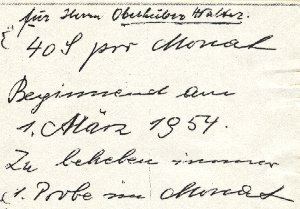 für Herrn Oberhuber Walter.
40 S pro Monat
Beginnend am
1. März 1954.
Zu beheben immer
1. Probe im Monat